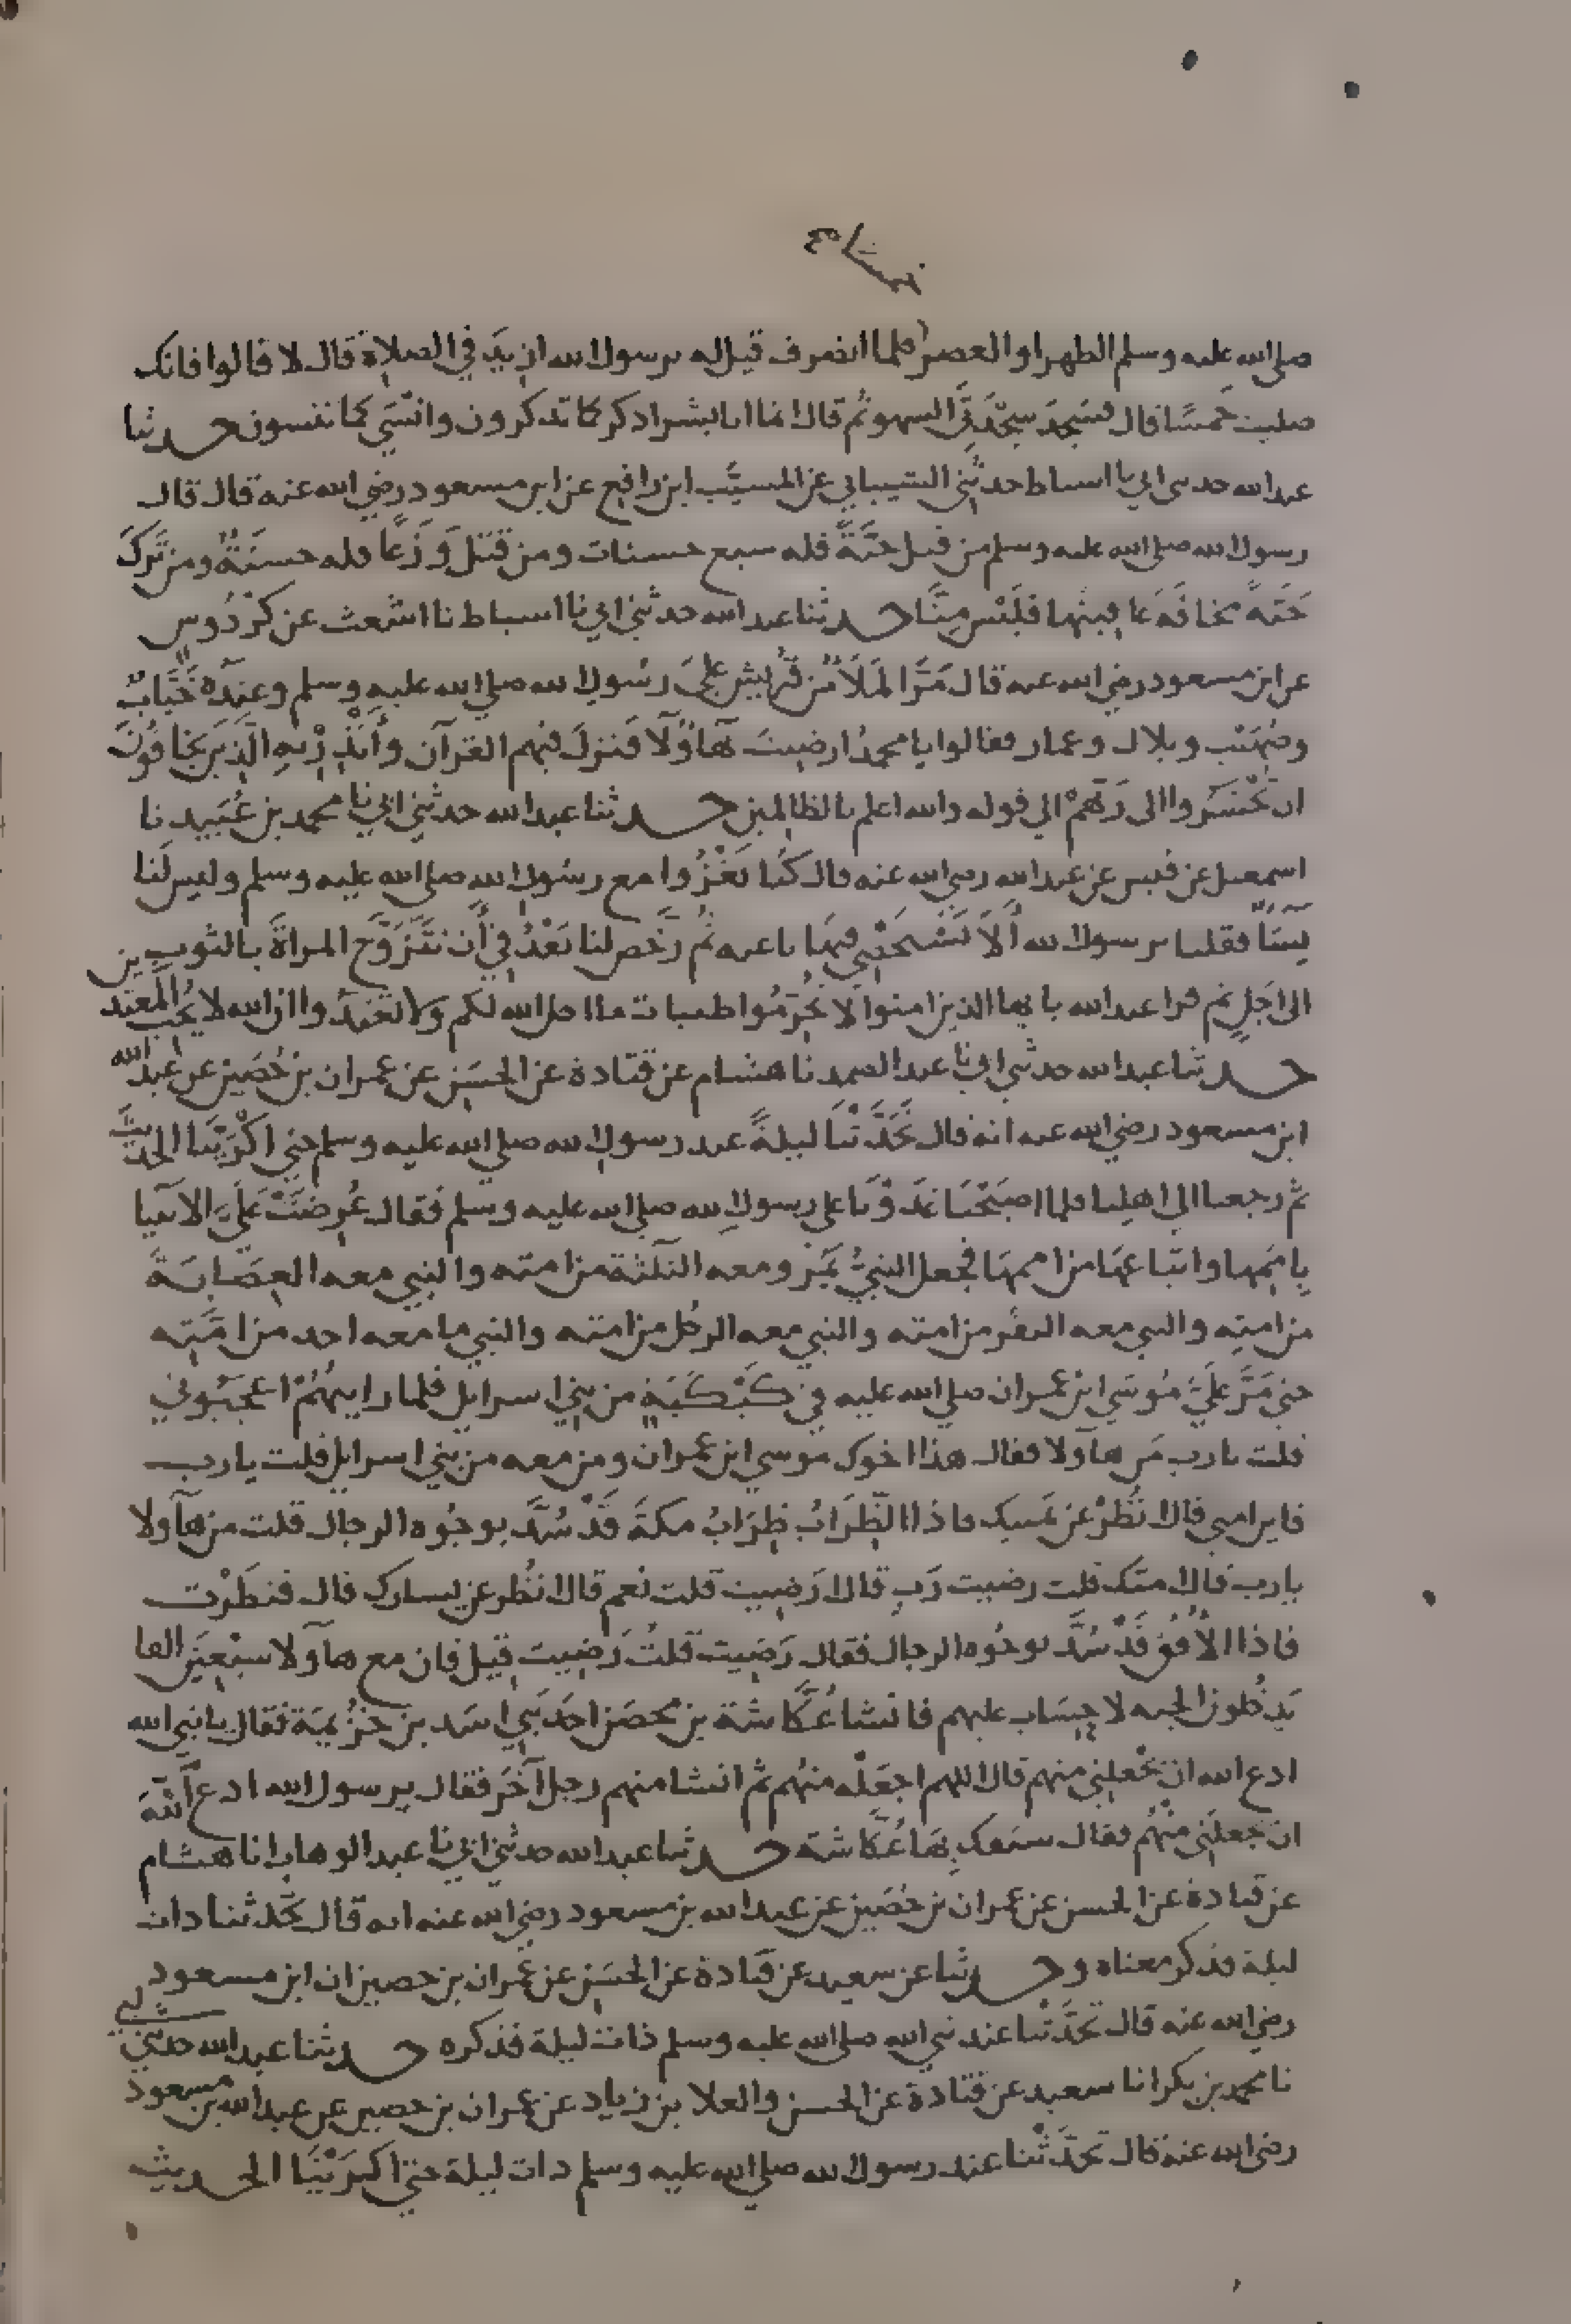 صلى الله عليه وسلم الظهر او العصر فلما انصرف قيل له يرسول الله ازيد في الصلاة قال لا قالوا فانك
صليت خمسًا قال فسَجد سجدَتَي السهو ثم قال انما انا بشر اذكر كما تذكرون وانسَي كما تنسون حدثنا
عبد الله حدثني ابي نا اسباط حدثني الشيباني عن المسيَّب ابن رافع عن ابن مسعود رضي الله عنه قال قال
رسول الله صلى الله عليه وسلم من قتل حيَّةً فله سبع حسنات ومن قتل وَزَغًا فله حسنَةٌ ومن تَركَ
حَيَّةً مخافَةَ عاقبتها فلَيْس مِنَّا حدثنا عبد الله حدثني ابي نا اسباط نا اشعث عن كُرْدُوسٍ
عن ابن مسعود رضي الله عنه قال مَرَّ الملَأُ مِن قُرَيش علىَ رسُول الله صلي الله عليه وسلم وعندَهُ خَبَّابٌ
وصُهَيْب وبلال وعمار فقالوا يا محمدُ ارضيتَ بهاؤُلآ فَنزلَ فيهم القرآن وأَنْذِرْ بِهِ الَّذِينَ يَخَافُونَ
ان يُحْشَرُوا الى رَبِّهمْ الي قوله والله اعلم بالظالمين حدثنا عبد الله حدثني ابي نا محمد بن عُبَيد نا
اسمعيل عن قيس عن عبد الله رضي الله عنه قال كنَّا نَغْزُوا مع رسُول الله صلى الله عليه وسلم وليس لنا
نِسَآءٌ فقلنا يرسول الله أَلاَ نَسْتَخْصِي فنهَانا عنه ثُم رَخَّص لنا بَعْدُ في أَن نتَزَوَّج المراةَ بالثوبِ
الى اجَلٍ ثم قرا عبد الله يا يها الذين امنوا لا تُحَرِّمُوا طيبات ما احل الله لكم ولا تعْتَدُوا ان الله لا يحُب المعتد ين
حدثنا عبد الله حدثني ابي نا عبد الصمد نا هشام عن قتادة عن الحسَن عن عمران بن حُصَين عن عبد الله
ابن مسعود رضي الله عنه انه قال تحَدَّثْنَا ليلةً عند رسول الله صلى الله عليه وسلم حتي اكْرَيْنَا الحَديث
ثم رجعنا الي اهلينا فلما اصبَحْنَا غَدَوْنا على رسول الله صلى الله عليه وسَلم فقال عُرِضَتْ عَلَيَّ الانبيا
بِاُمَمِها واتباعهَا من اممهَا فجعل النبيُّ يَمُرُّ ومعه الثلثة من امته والنبي معه العِصَابَةَ
من امتِه والنبي معه النفَر من امته والنبي معه الرجُل من امته والنبي ما معه احد من امَّتِه
حتي مَرَّ علَيَّ مُوسَي ابن عمران صلي الله عليه في كَبْكَبَةٍ من بني اسرايل فلما رايتهُمْ اعْجَبُوني
قلت يا رب مَن هآولا فقال هذا اخوك موسي ابن عمران ومن معه من بني اسرايل قلت يا رب
فاين امتي قال انْظُرْ عن يَمينك فاذا الظِّرَابُ ظِرَابُ مكةَ قَدْ سُدَّ بوجُوه الرجال قلت من هآولا
يا رب قال امتك قلت رضيت رَبِ قال ارَضِيت قلت نعم قال انظُر عن يسارك قال فنظَرْت
فاذا الأُفق قَدْ سُدَّ بوجُوه الرجال فقال رَضِيت قلتُ رَضِيت قيل فان مع هآولا سبْعِين الفا
يَدخُلون الجنه لا حِسَاب عليهم فانشا عُكَّاشة بن محصَن احَد بَنِي اسَد بن خزُيمَة فقال يا نبي الله
ادع الله ان يجْعلني منهم قال اللهم اجعَلْه منهُم ثم انشا منهم رجل آخَر فقال يرسول الله ادع الله
ان يجعلَني منْهُم فقال سبَقك بِهَا عُكَّاشة حدثنا عبد الله حدثني ابي نا عبد الوهاب انا هشام
عن قتادة عن الحسن عن عمران بن حُصَين عن عبد الله بن مسعود رضي الله عنه انه قال تحَدثنا ذات
ليلة فذكر معناه وحدثنا عن سعيد عن قتادة عن الحسَن عن عُمران بن حصين ان ابن مسعود
رضي الله عنه قال تحَدَّثْنا عند نبي الله صلى الله عليه وسلم ذات ليلة فذكره حدثنا عبد الله حدثني ابي
نا محمد بن بكر انا سعيد عن قتادة عن الحسن والعلا بن زياد عن عمران بن حصين عن عبد الله بن مسعود
رضي الله عنه قال تحَدَّثْنا عند رسول الله صلى الله عليه وسلم ذات ليلة حتى اكرَيْنَا الحديث